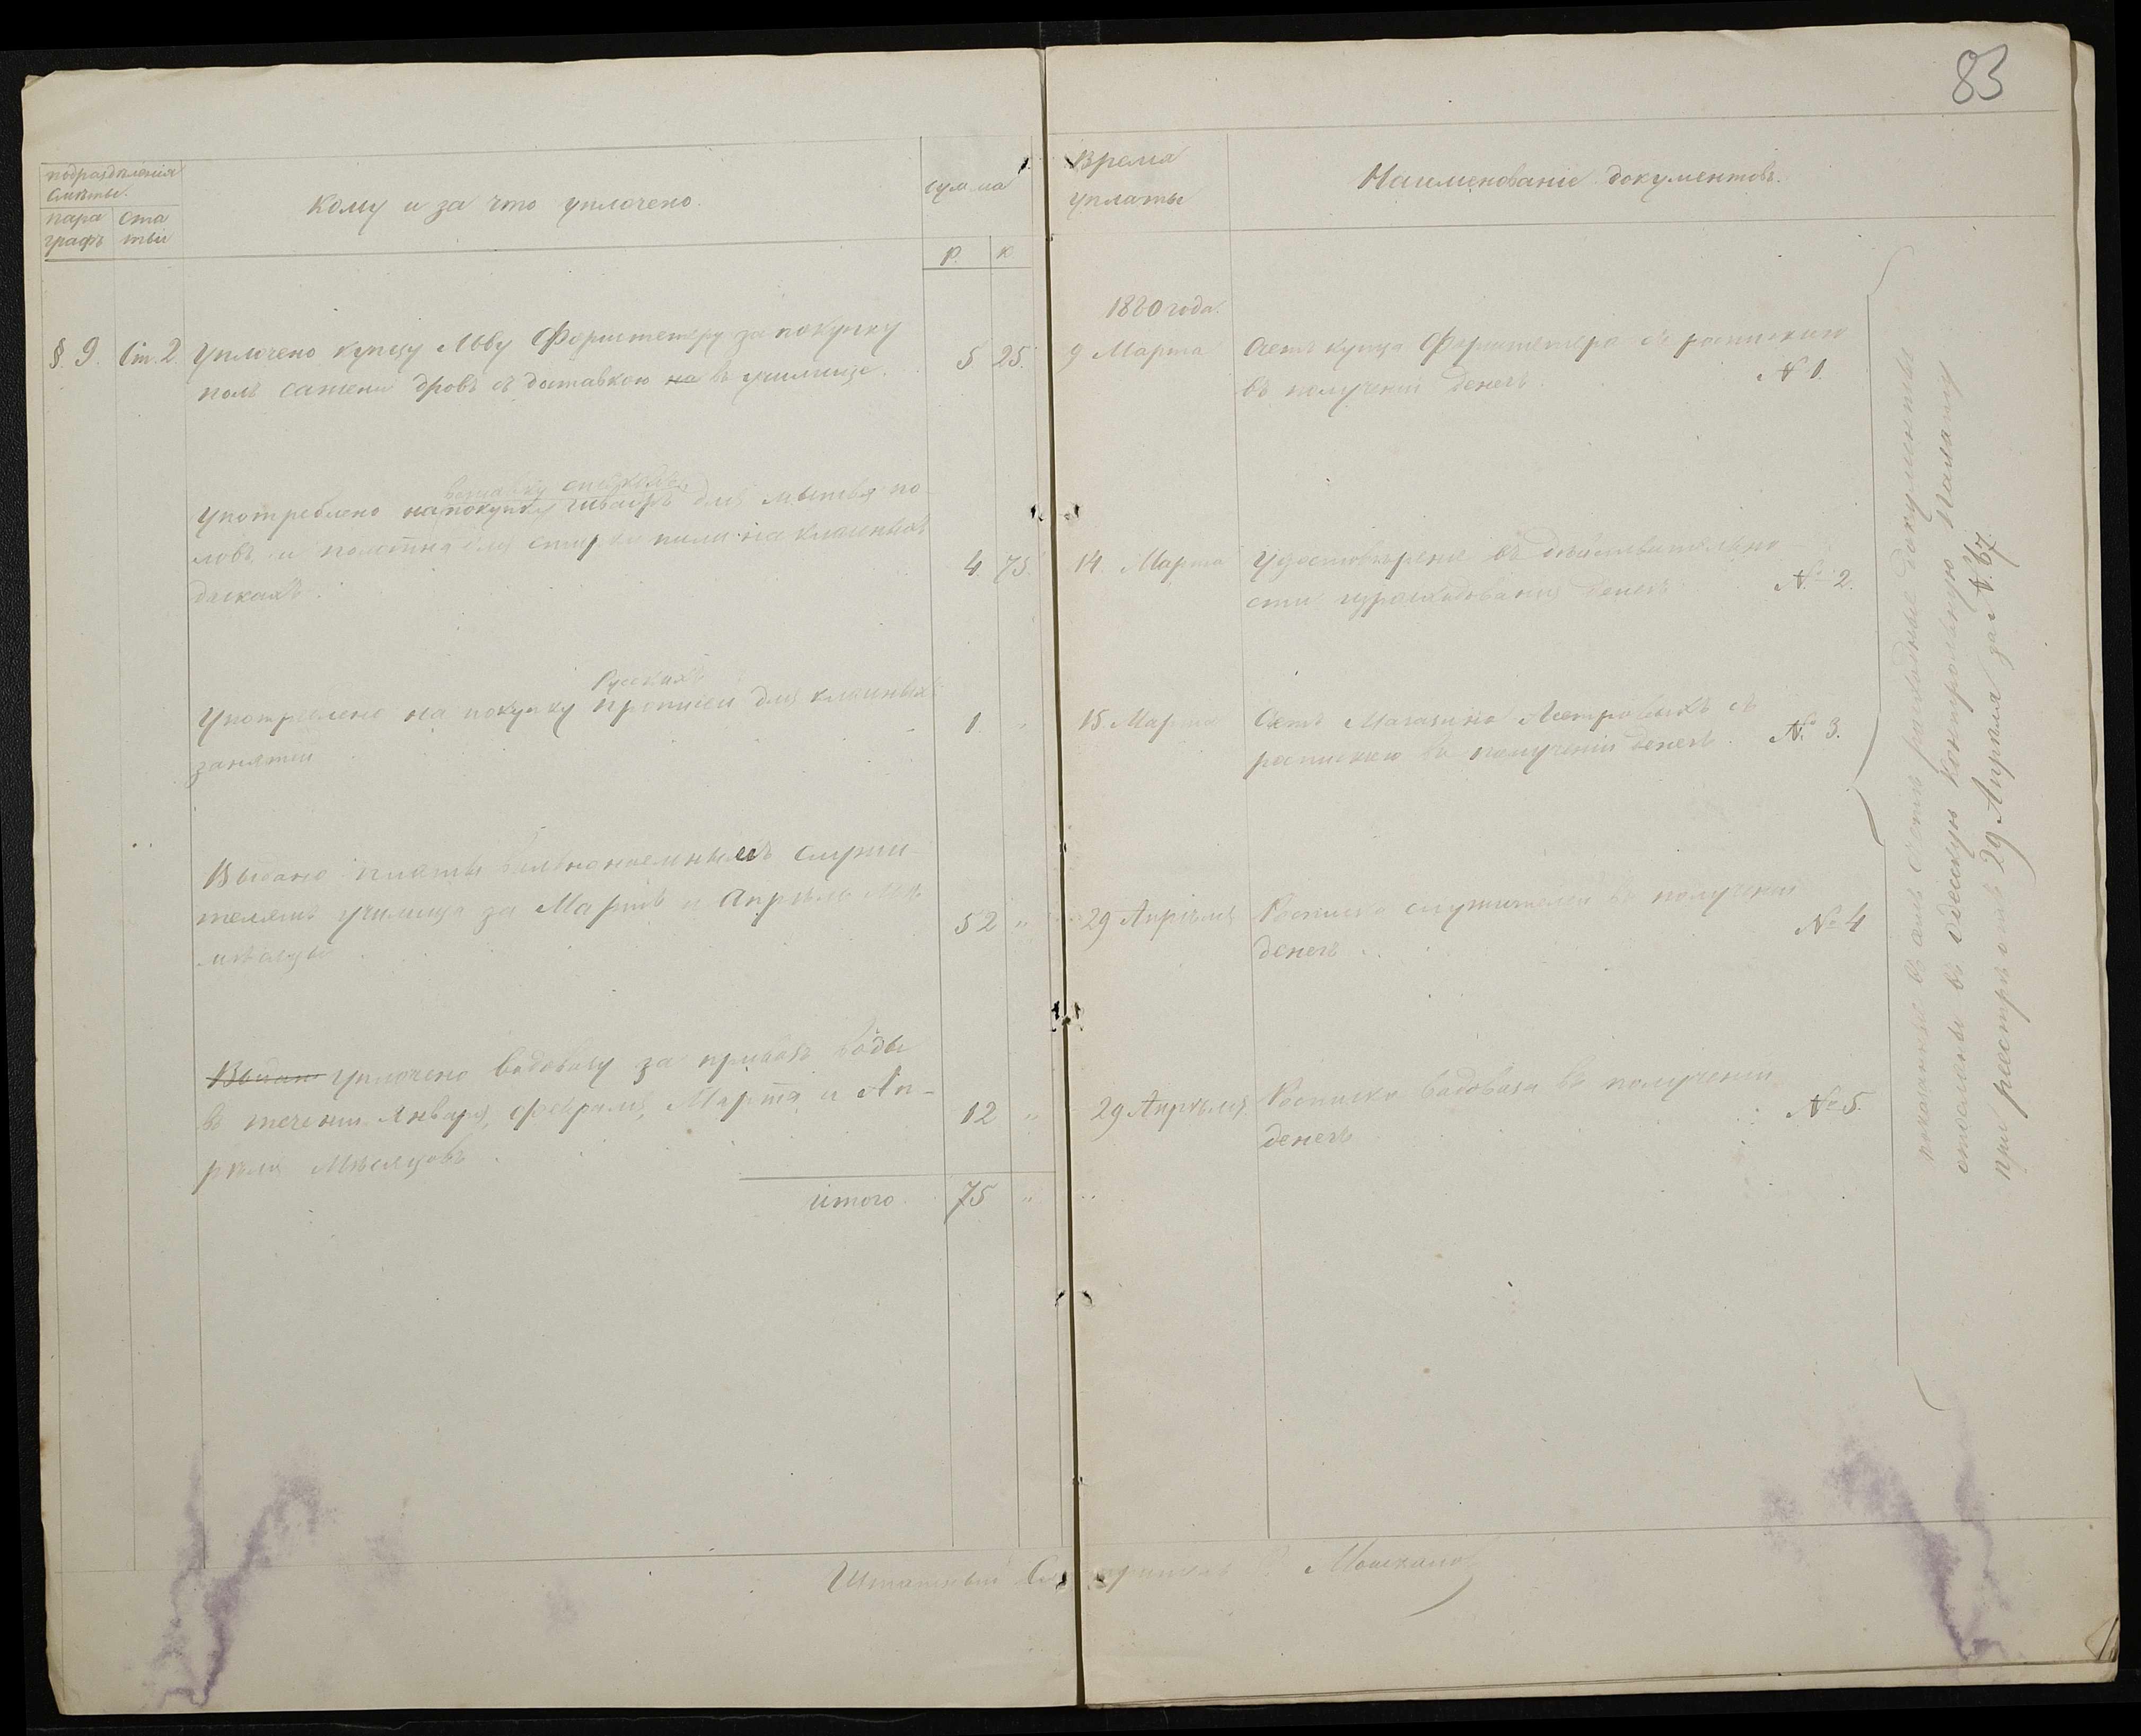 83
подраздѣленія
смѣты.
пара
графъ
Ста
тьи
Кому и за что уплочено.
сумма
Р. К
Время
уплаты
Наименованіе документовъ.
1880 года.
§ 9. Ст. 2 Уплочено купцу Льву за покупку
полъ сажени дровъ съ доставкою на въ училище.
5 25.
9 Марта
Счетъ купца съ роспискою
въ полученіи денегъ. № 1.
Употреблено на покупку для мытья по-
ловъ и на классныхъ
доскахъ.
4 75.
14 Марта
Удостовѣреніе въ дѣйствительно
сти израсходованія денегъ № 2.
Русскихъ
Употреблено на покупку прописей для классныхъ
занятій
1 "
15 Марта
Счетъ Магазина съ
роспискою въ полученіи денегъ. № 3.
Выдано вольнонаемнымъ служи-
телямъ училища за Мартъ и Апрѣль
мѣсяцы
52 "
29 Апрѣля
Росписка служителей въ полученіи
денегъ № 4
Выдано Уплочено водовозу за привозъ воды
въ теченіи Января, Февраля, Марта и Ап-
рѣля Мѣсяцовъ
12 "
29 Апрѣля
Росписка водовоза въ полученіи
денегъ № 5.
итого 75 "
показанные въ семъ счетѣ расходные документы
отосланы въ Одесскую Контрольную Палату
при реестрѣ отъ 29 Апрѣля за № 67.
Штатный